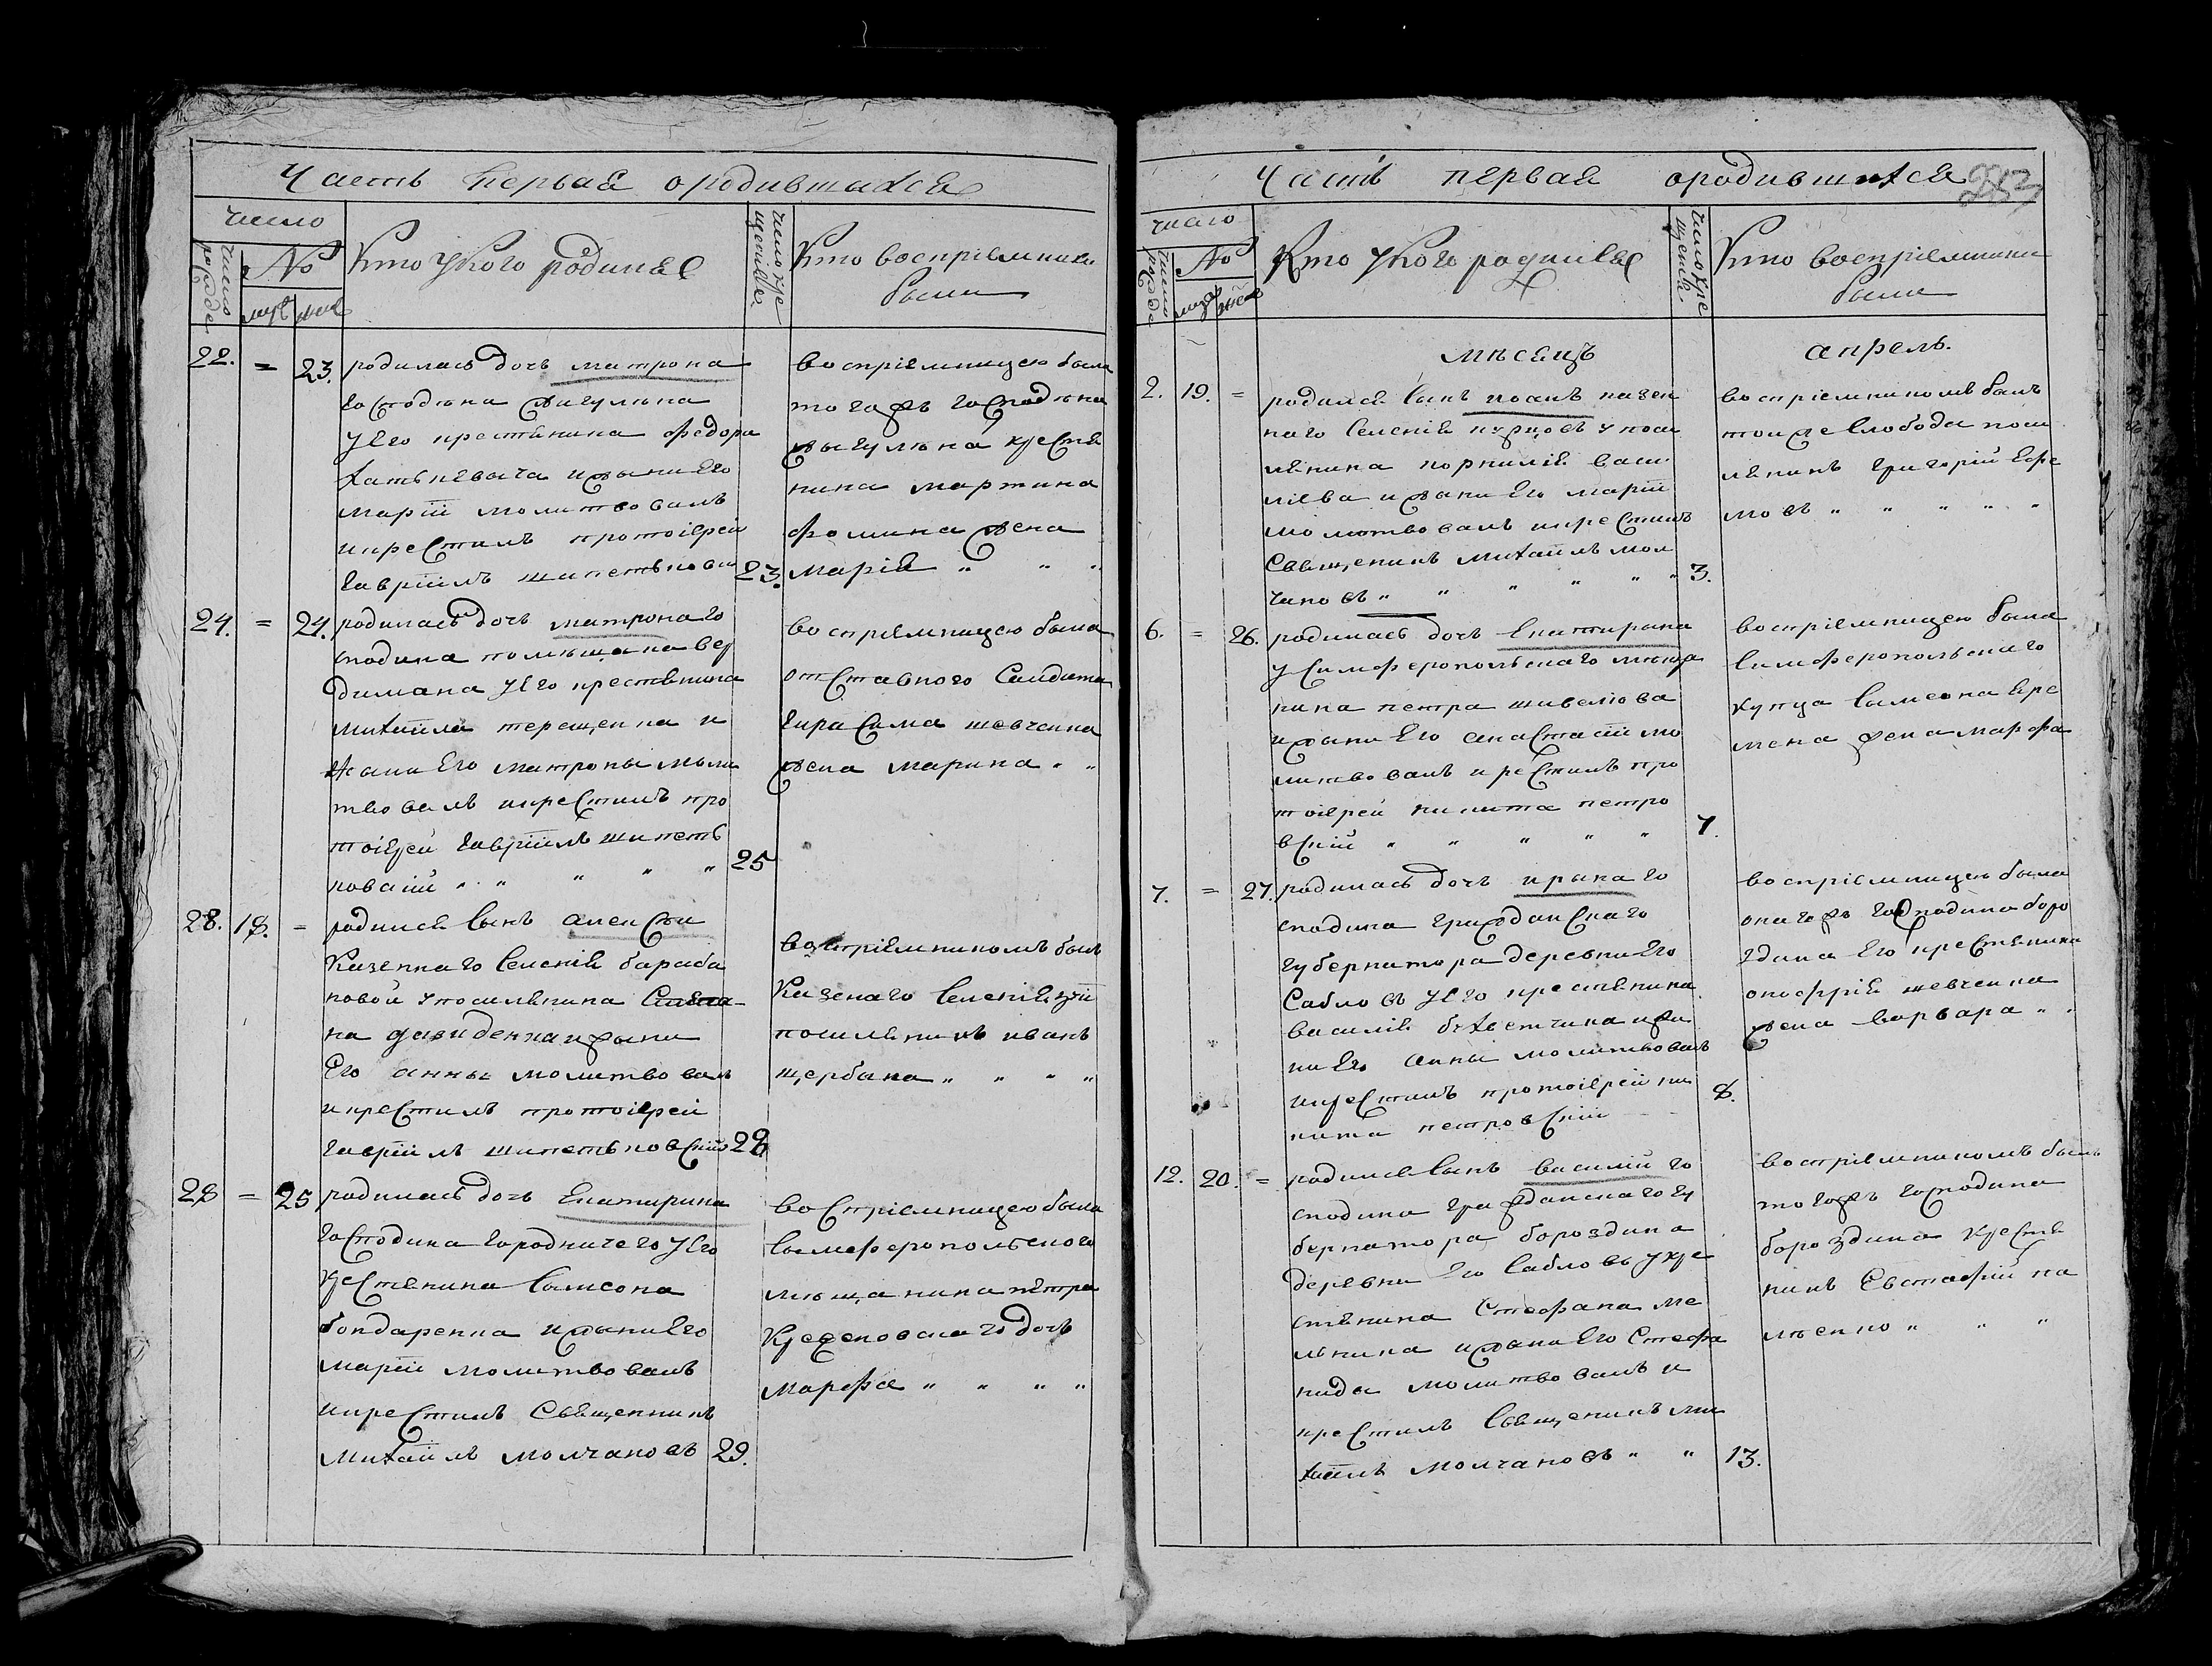 Часть первая ородившихся
число
число рожде
№
муж жен
Кто укого родился
число кре щения
Кто восприемники
были
22. = 23. родилась дочь матрона
господина
уего крестянина федора
и жены его
марїи молитвовалъ
икрестилъ протоіерей
гаврїилъ шипетьковскі 23.
восприемницею была
тогожъ господина
крестя
нина мартина
фомина жена
марія " " "
24. = 24. родилась дочь матрона го
сподина помещика вер
димана уего крестянина
михаила терещенка и
жены Его матроны моли
твовалъ икрестилъ про
тоіерей гаврїилъ шипеть
ковскій " " " " " 25
восприемницею была
отставного салдата
гирасима шевченка
жена марина " "
28. 18. = родился сынъ алексѣй
Казенного селенія бараба
новой упоселянина Степа-
на давиденка и жены
Его анны молитвовалъ
икрестилъ протоіерей
гаврїилъ шипетьковскій 28
воспріемникомъ былъ
Казеного селенія
поселянинъ иванъ
щербака " " " "
28 = 25 родилась дочь Екатирина
господина городничего уего
Крестянина самсона
бондаренка ижены Его
марїи молитвовалъ
икрестилъ Священникъ
михаилъ молчановъ 29.
воспріемницею была
симферопольского
мѣщанина петра
дочь
марфа " " " "
Часть первая ородившихся
число
число рожде
№
муж жен
Кто укого родился
число кре щения
Кто восприемники
были
мѣсяцъ апрель.
2. 19. = родился сынъ иоанъ казен
наго селенія курцовъ упосе
лянина корнилія васи
ліева ижены Его марїи
молитвовалъ икрестилъ
Священикъ михаилъ мол
чановъ " " " " " 3.
воспріемникомъ былъ
тоиже слободы посе
лянинъ григорій Ефре
мовъ " " " " "
6. = 26. родилась дочь Екатирина
усимферопольскаго мѣща
нина петра шевелюва
ижены Его анастасїи мо
литвовалъ икрестилъ про
тоіерей никита петро
вскій " " " " 7.
воспріемницею была
симферопольскаго
купца самсона Ере
мена жена марфа
7. = 27. родилась дочь ирина го
сподина гражданскаго
губернатора деревни Его
Сабловъ уего крестянина
василія ижи
ни Его анны молитвовалъ
икрестилъ протоіерей ни
кита петровскій 8.
воспріемницею была
оногожъ господина боро
здина Его крестянина
онофрія шевченка
жена варвара " "
12. 20. = родился сынъ василій го
сподина гражданскаго гу
бернатора бороздина
деревни Его Сабловъ укре
стянина Стефана ме
льника ижены Его Стефа
ниды молитвовалъ и
крестилъ Священикъ ми
хаилъ молчановъ " " 13.
воспріемникомъ былъ
тогожъ господина
бороздина Крестя
нинъ Евстафій
" " "